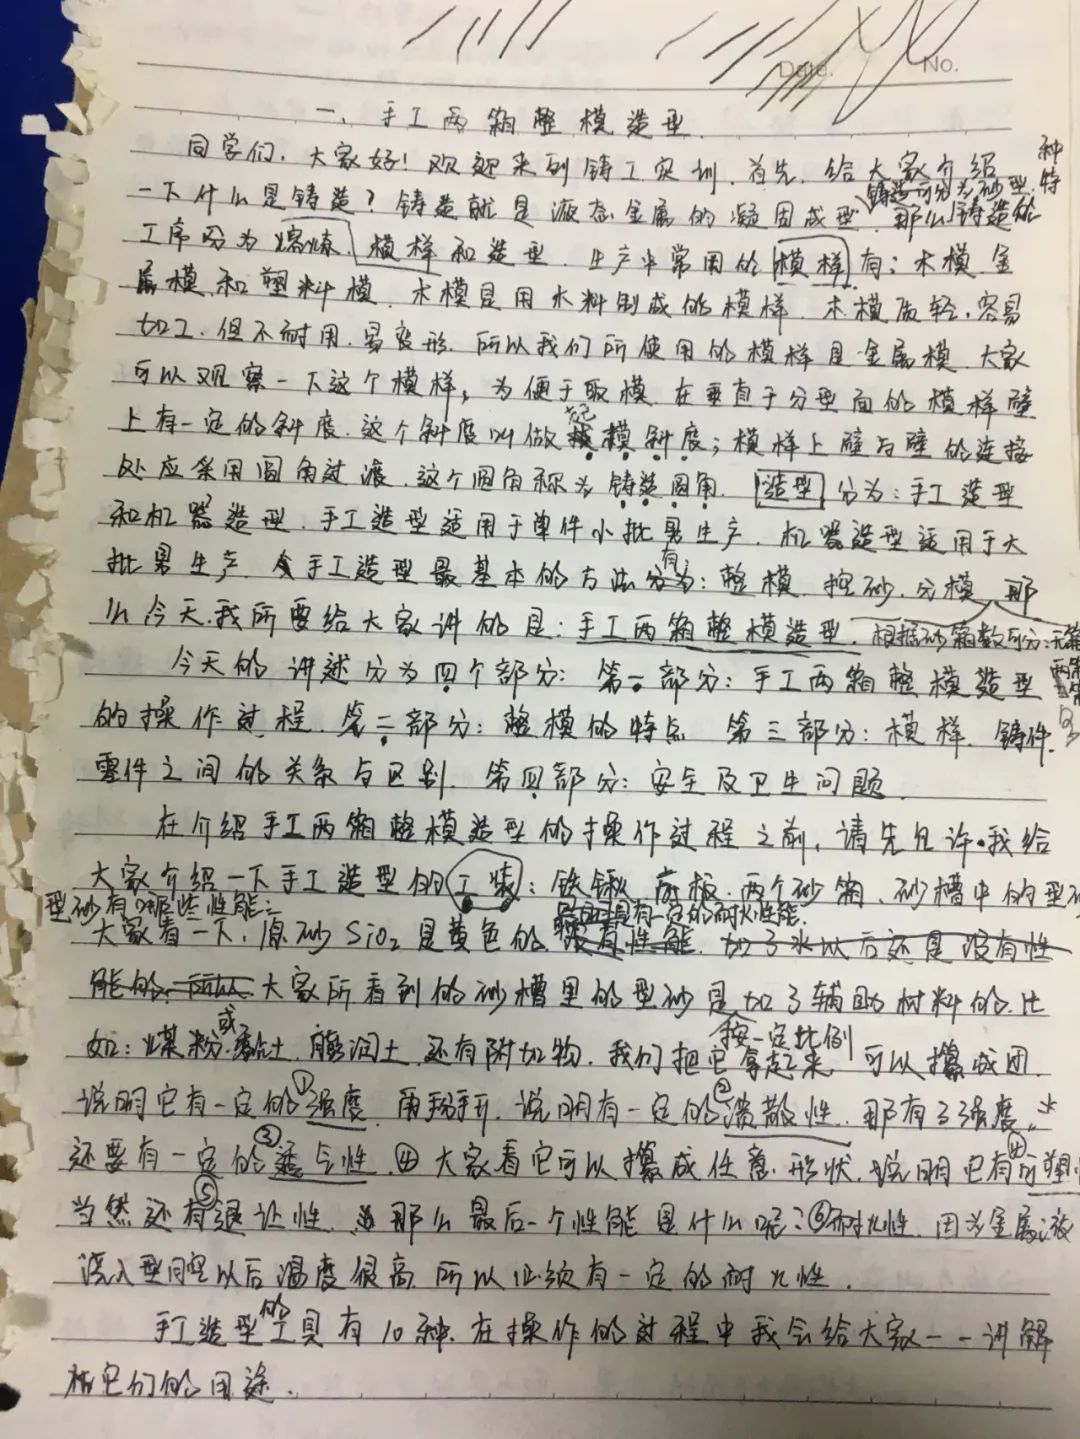 Date. No.
一、手工两箱整模造型
同学们，大家好！欢迎来到铸工实训，首先，给大家介绍
一下什么是铸造？铸造就是液态金属的凝固成型，铸造可分为砂型、特种 那么铸造的
工序分为熔炼、模样和造型。生产中常用的模样有：木模、金
属模和塑料模。木模是用木料制成的模样，木模质轻，容易
加工，但不耐用，易变形，所以我们所使用的模样是金属模，大家
可以观察一下这个模样，为便于取模，在垂直于分型面的模样壁
上有一定的斜度，这个斜度叫做起模斜度；模样上壁与壁的连接
处应采用圆角过渡，这个圆角称为铸造圆角。造型分为：手工造型
和机器造型，手工造型适用于单件小批量生产，机器造型适用于大
批量生产，手工造型最基本的方法有：整模、挖砂、分模，那
么今天，我所要给大家讲的是：手工两箱整模造型。根据砂箱数可分：无箱 两箱
今天的讲述分为四个部分：第一部分：手工两箱整模造型
的操作过程，第二部分：整模的特点 第三部分：模样、铸件、
零件之间的关系与区别，第四部分：安全及卫生问题。
在介绍手工两箱整模造型的操作过程之前，请先允许我给
大家介绍一下手工造型的工装：铁锹、底板、两个砂箱、砂槽中的型砂
型砂有哪些性能？
大家看一下，原砂SiO₂是黄色的 具有一定的耐火性能 没有性能，加了水以后还是没有性
能的，所以大家所看到的砂槽里的型砂是加了辅助材料的，比
如：煤粉或黏土、膨润土，还有附加物，按一定比例 我们把它拿起来，可以攥成团，
说明它有一定的①强度，用手掰开，说明有一定的②溃散性，那有了强度，
还要有一定的③透气性，④大家看它可以攥成任意形状，说明它有④可塑性
当然还有⑤退让性，那么最后一个性能是什么呢？⑥耐火性，因为金属液
浇入型腔以后温度很高，所以必须有一定的耐火性。
手工造型的工具有10种，在操作的过程中我会给大家一一讲解
它们的用途。